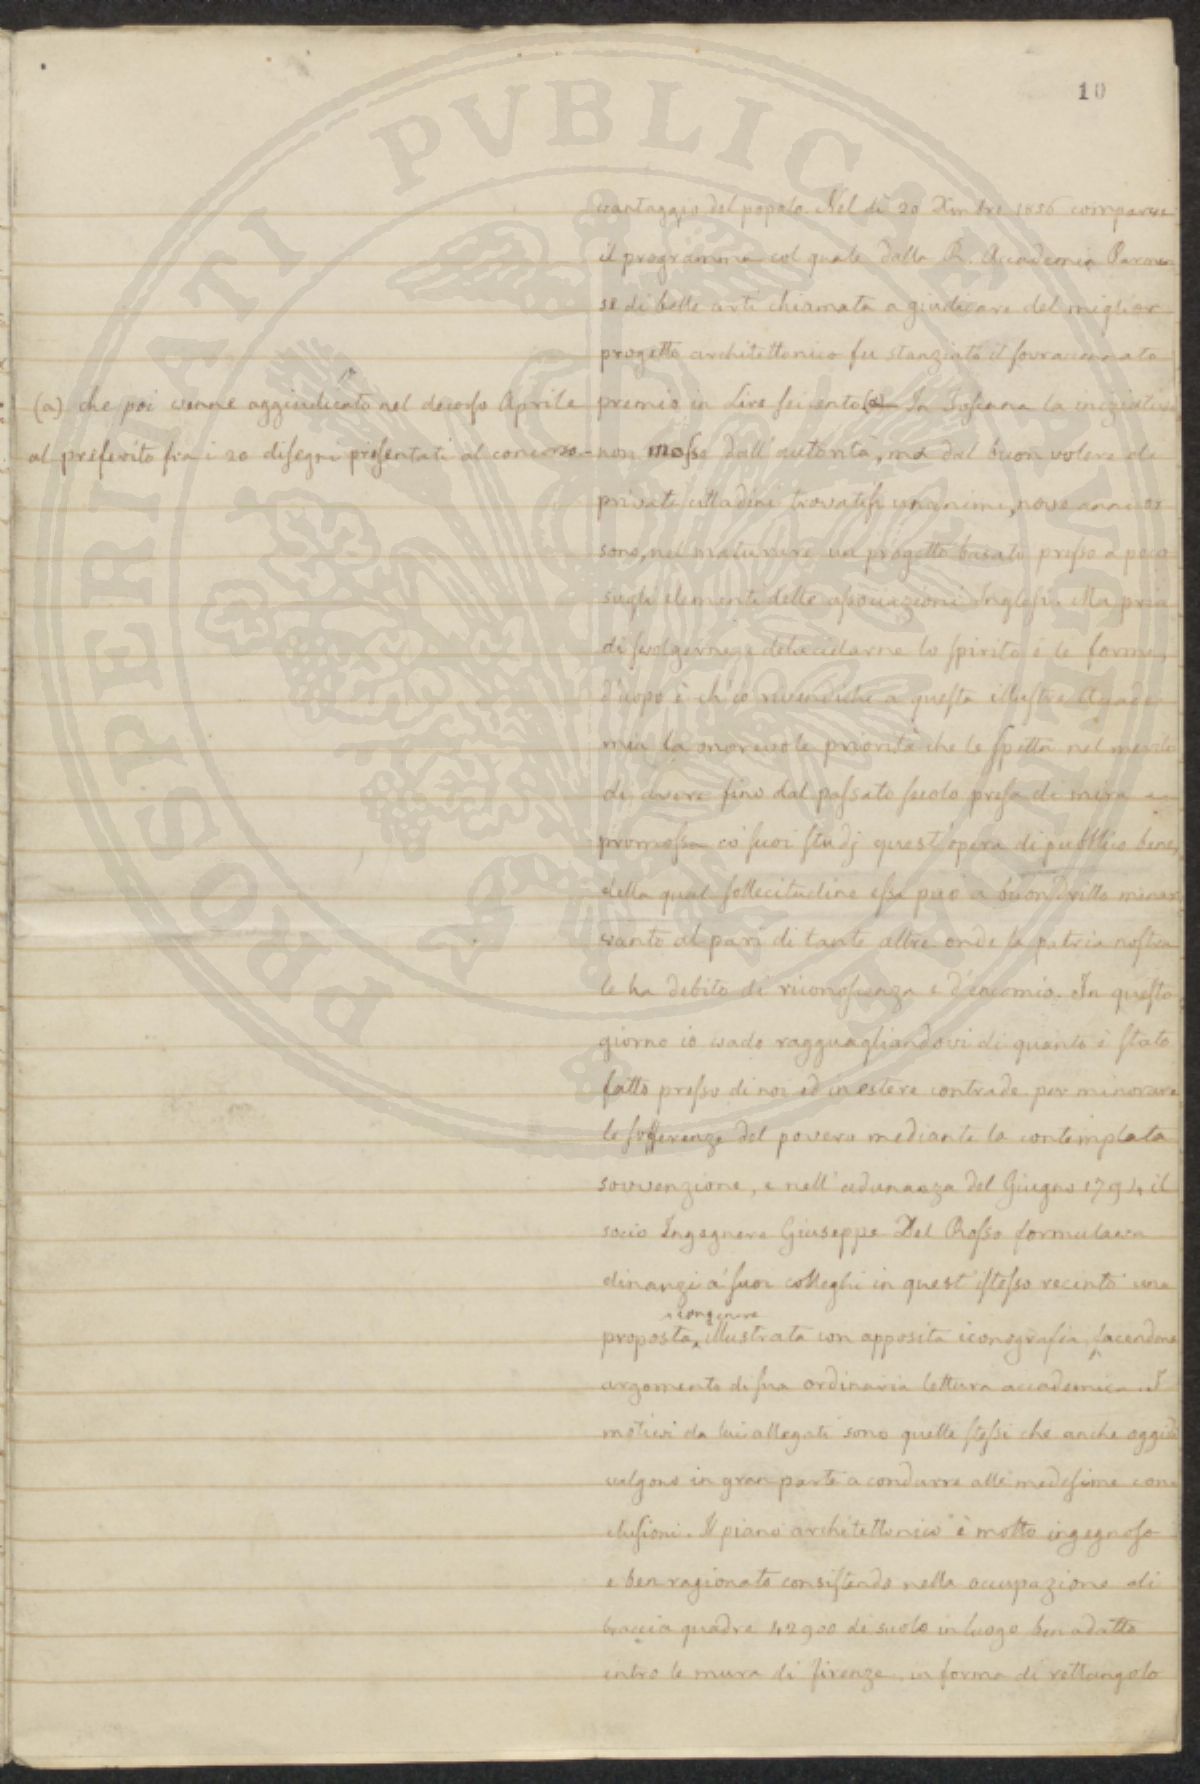 10
vantaggio del popolo. Nel dì 20 Xmbre 1856 comparve
il programma col quale dalla R. Accademia Parmen
se di belle arti chiamata a giudicare del miglior
progetto architettonico fu stanziato il sovraccennato
premio in Lire seicento (a) In Toscana la iniziativa
non mosse dall'autorità, ma dal buon volere di
privati cittadini trovatisi unanimi, nove anni or
sono, nel maturare un progetto basato presso a poco
sugli elementi delle associazioni Inglesi. Ma pria
di svolgerne e delucidarne lo spirito e le forme,
d'uopo è ch'io rivendichi a questa illustre Accade
mia la onorevole priorità che le spetta nel merito
di avere fino dal passato secolo presa di mira e
promossa co' suoi studj quest'opera di pubblico bene,
della qual sollecitudine essa può a buon dritto menar
vanto al pari di tante altre onde la patria nostra
le ha debito di riconoscenza e d'encomio. In questo
giorno io vado ragguagliandovi di quanto è stato
fatto presso di noi ed in estere contrade per minorare
le sofferenze del povero mediante la contemplata
sovvenzione, e nell'adunanza del Giugno 1794 il
socio Ingegnere Giuseppe Del Rosso formulava
dinanzi a' suoi colleghi in quest'istesso recinto una
congenere
proposta, illustrata con apposita iconografia, facendone
argomento di sua ordinaria lettura accademica. I
motivi da lui allegati sono quelli stessi che anche oggidì
valgono in gran parte a condurre alle medesime con
clusioni. Il piano architettonico è molto ingegnoso
e ben ragionato consistendo nella occupazione di
braccia quadre 42900 di suolo in luogo ben adatto
entro le mura di Firenze, in forma di rettangolo
(a) che poi venne aggiudicato nel decorso Aprile
al preferito fra i 20 disegni presentati al concorso.
PROSPERITATI PVBLICAE AVGENDAE